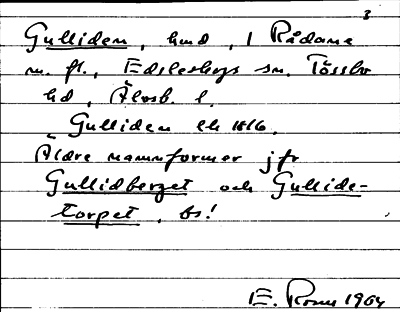 3
Gulliden, hmd, 1 Rådane
m. fl., Edsleskogs sn. Tössbo
hd, Älvsb. l.
Gulliden lk 1816.
Äldre namnformer jfr
Gullidberget och Gullide-
torpet, bs!
E. 1964